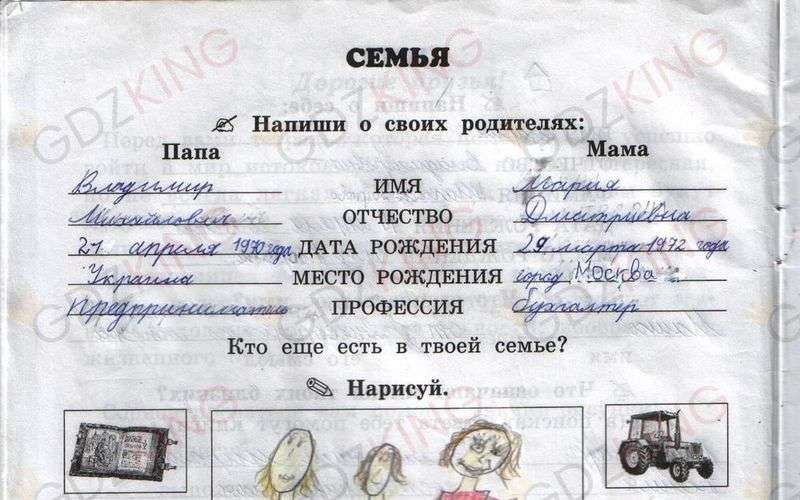 СЕМЬЯ
Напиши о своих родителях:
Папа Мама
Владимир ИМЯ Мария
Михайлович ОТЧЕСТВО Дмитриевна
21 апреля 1970 года ДАТА РОЖДЕНИЯ 29 марта 1972 года
Украина МЕСТО РОЖДЕНИЯ город Москва
Предприниматель ПРОФЕССИЯ бухгалтер
Кто еще есть в твоей семье?
Нарисуй.
GDZKING